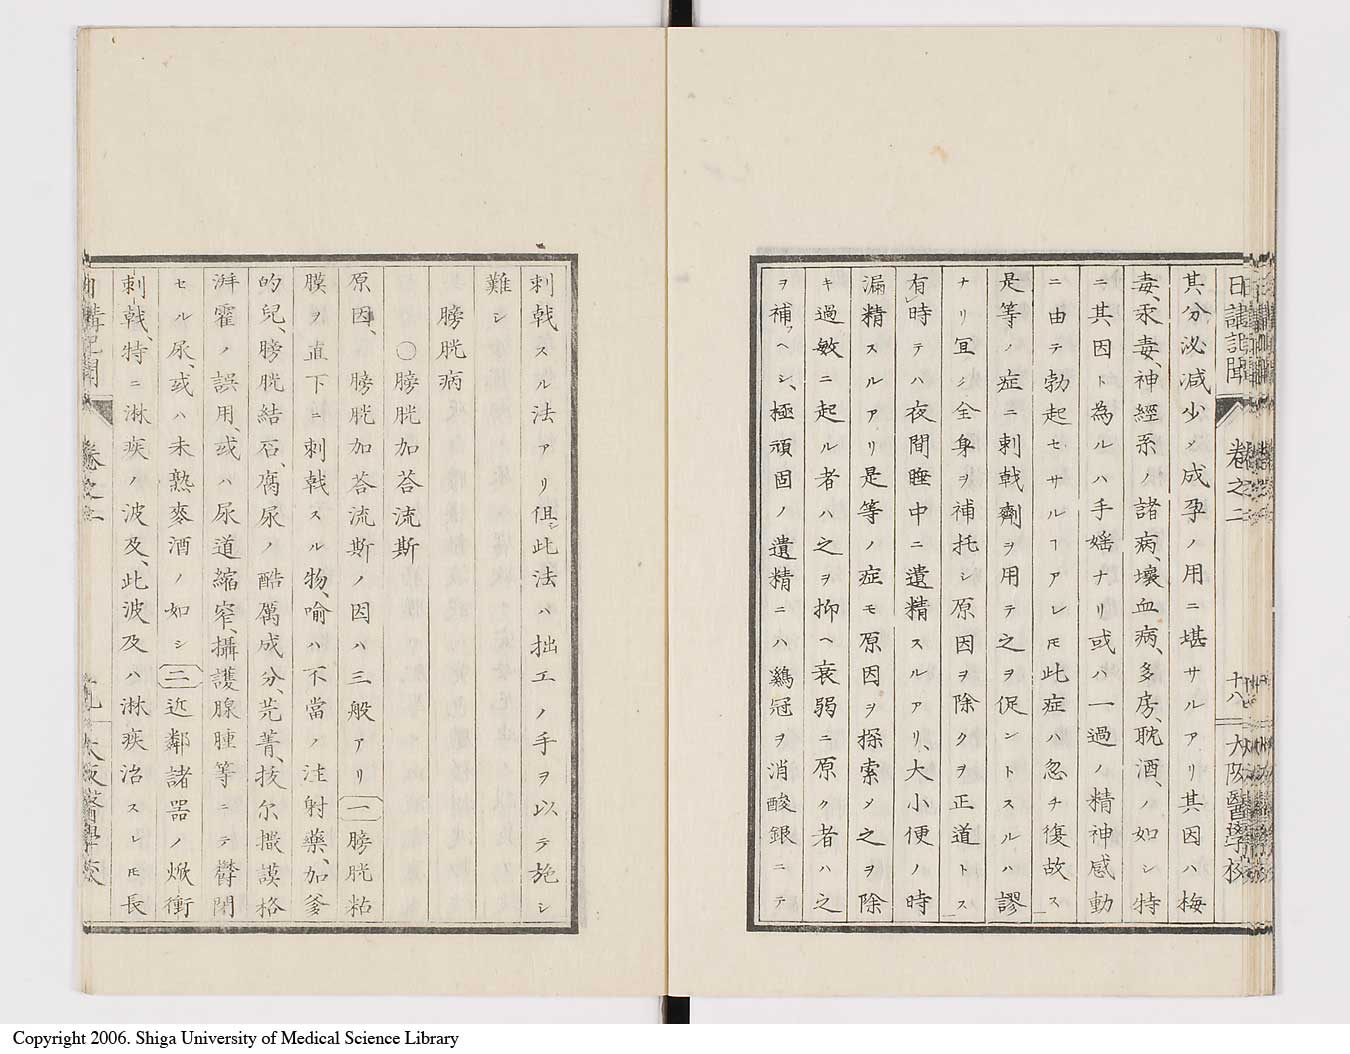 日講記聞 卷之二 十八 大阪醫學校
其分泌減少〆成孕ノ用ニ堪サルアリ其因ハ梅
毒、汞毒、神經系ノ諸病、壞血病、多房、耽酒、ノ如シ特
ニ其因ト為ルハ手婬ナリ或ハ一過ノ精神感動
ニ由テ勃起セサルヿアレ𪜈此症ハ忽チ復故ス
是等ノ症ニ刺戟劑ヲ用テ之ヲ促ントスルハ謬
ナリ冝シ全身ヲ補托シ原因ヲ除クヲ正道トス
有時テハ夜間睡中ニ遺精スルアリ、大小便ノ時
漏精スルアリ是等ノ症モ原因ヲ探索メ之ヲ除
キ過敏ニ起ル者ハ之ヲ抑ヘ衰弱ニ原ク者ハ之
ヲ補フヘシ、極頑固ノ遺精ニハ鷄冠ヲ消酸銀ニテ
刺戟スル法アリ但シ此法ハ拙工ノ手ヲ以テ施シ
難シ
膀胱病
〇膀胱加荅流斯
原因、膀胱加荅流斯ノ因ハ三般アリ一膀胱粘
膜ヲ直下ニ刺戟スル物、喻ハ不當ノ注射藥、加爹
的兒、膀胱結石、腐尿ノ酷厲成分、芫菁、拔尓撒謨格
湃霍ノ誤用、或ハ尿道縮窄、攝護腺腫等ニテ欝閉
セル尿、或ハ未熟麥酒ノ如シ二近鄰諸噐ノ焮衝
刺戟、特ニ淋疾ノ波及、此波及ハ淋疾治スレ𪜈長
日講記聞 卷之二 九 大阪醫學校
Copyright 2006. Shiga University of Medical Science Library